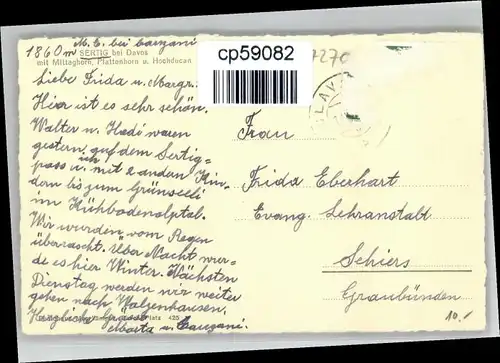 M. C. bei
1860 m SERTIG bei Davos
mit Mittaghorn, Plattenhorn u. Hochducan
Liebe Frida u. Margr.
Hier ist es sehr schön.
Walter u. Hedi waren
gestern auf dem Sertig-
pass u. ich mit 2 andern Kin-
dern bis zum Grünseeli
im Kühbodenalptal.
Wir wurden vom Regen
überrascht. Über Nacht wur-
de es hier Winter. Nächsten
Dienstag werden wir weiter
gehen nach Walzenhausen.
Herzliche Grüsse
Marta u.
Platz 425
cp59082
7270
Frau
Frida Eberhart
Evang. Lehranstalt
Schiers
Graubünden
10.-